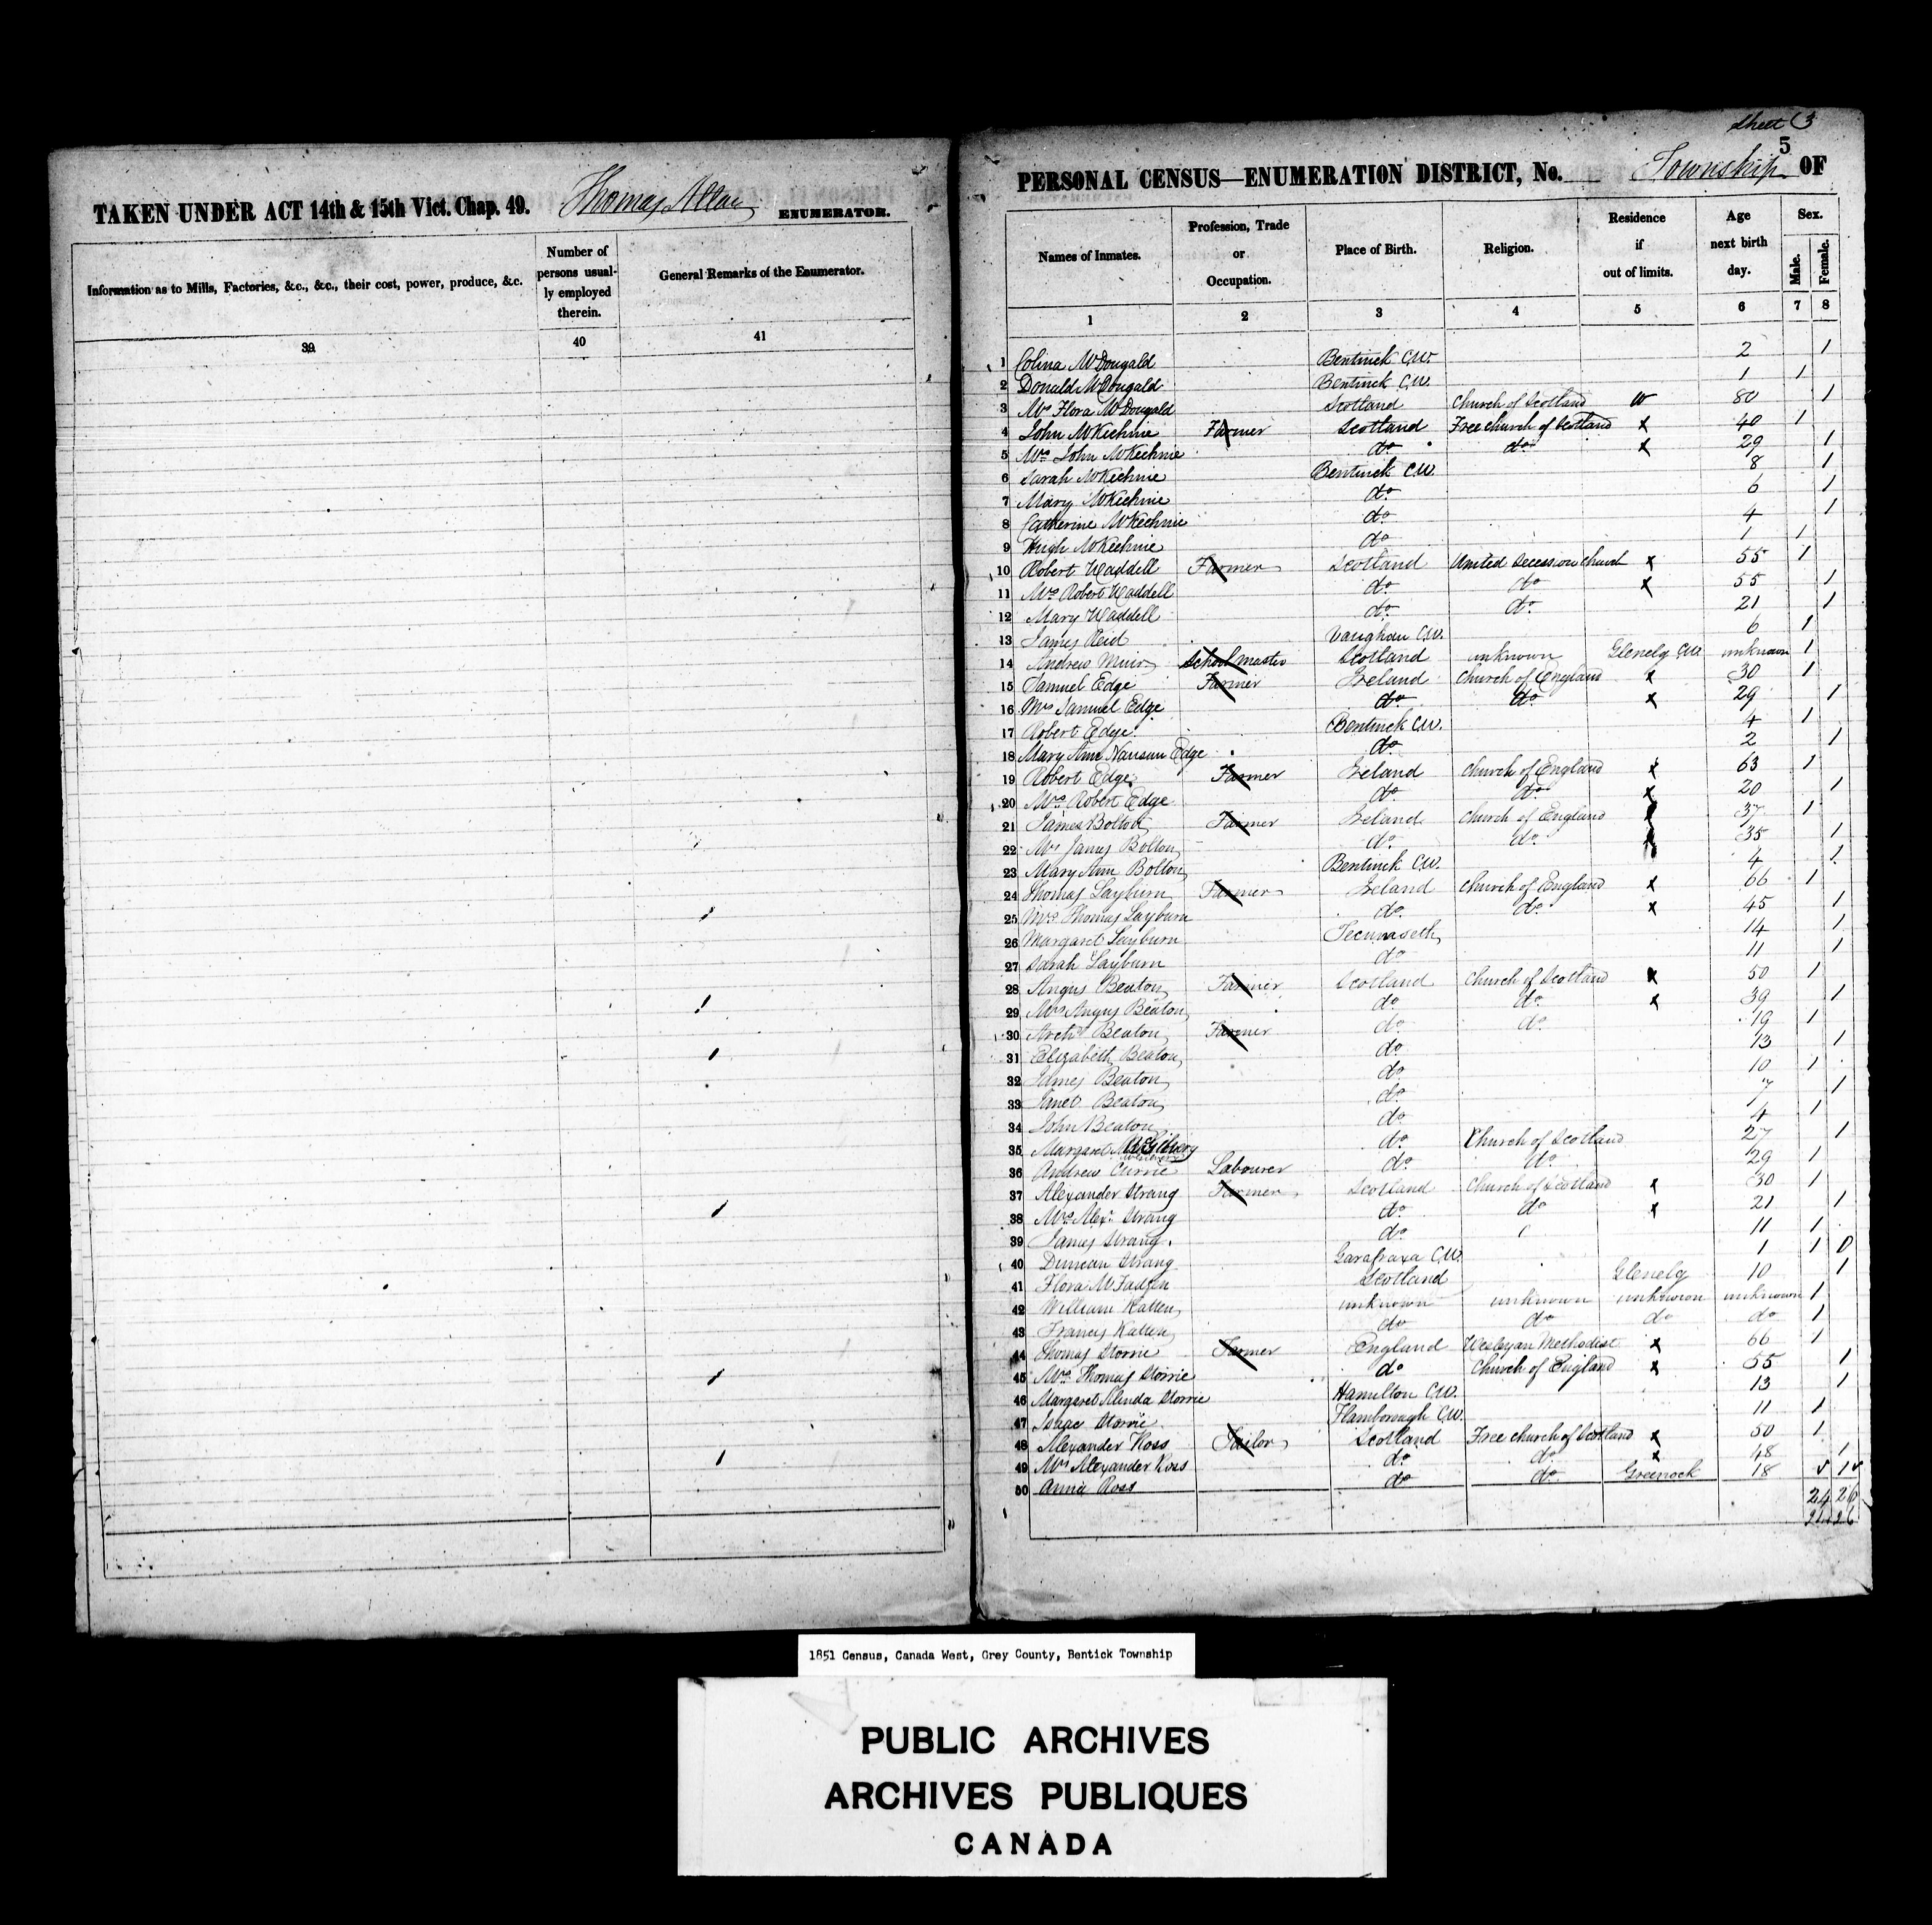 TAKEN UNDER ACT 14th & 15th Vict. Chap. 49. Thomas Allan ENUMERATOR.
Information as to Mills, Factories, &c., &c., their cost, power, produce, &c.
Number of persons usually employed therein.
General Remarks of the Enumerator.
39 40 41
Sheet 3
5
PERSONAL CENSUS—ENUMERATION DISTRICT, No. Township OF
Names of Inmates. Profession, Trade or Occupation. Place of Birth. Religion. Residence if out of limits. Age next birth day. Sex. Male. Female.
1 2 3 4 5 6 7 8
1 Colina McDougald Bentinck C.W. 2 1
2 Donald McDougald Bentinck C.W. 1 1
3 Mrs Flora McDougald Scotland Church of Scotland w 80 1
4 John McKechnie Farmer Scotland Free church of Scotland x 40 1
5 Mrs John McKechnie do do x 29 1
6 Sarah McKechnie Bentinck C.W. 8 1
7 Mary McKechnie do 6 1
8 Catherine McKechnie do 4 1
9 Hugh McKechnie do 1 1
10 Robert Waddell Farmer Scotland United Secession church x 55 1
11 Mrs Robert Waddell do do x 55 1
12 Mary Waddell do do 21 1
13 James Reid Vaughan C.W. 6 1
14 Andrew Muir School master Scotland unknown Glenelg C.W. unknown 1
15 Samuel Edge Farmer Ireland Church of England x 30 1
16 Mrs Samuel Edge do do x 29 1
17 Robert Edge Bentinck C.W. 4 1
18 Mary Ann Edge do 2 1
19 Robert Edge Farmer Ireland Church of England x 63 1
20 Mrs Robert Edge do do x 20 1
21 James Bolton Farmer Ireland Church of England x 37 1
22 Mrs James Bolton do do x 35 1
23 Mary Ann Bolton Bentinck C.W. 4 1
24 Thomas Layburn Farmer Ireland Church of England x 66 1
25 Mrs Thomas Layburn do do x 45 1
26 Margaret Layburn Tecumseth 14 1
27 Sarah Layburn do 11 1
28 Angus Beaton Farmer Scotland Church of Scotland x 50 1
29 Mrs Angus Beaton do do x 39 1
30 Archd Beaton Farmer do do 19 1
31 Elizabeth Beaton do 13 1
32 James Beaton do 10 1
33 Janet Beaton do 7 1
34 John Beaton do 4 1
35 Margaret do Church of Scotland 27 1
36 Andrew Currie Labourer do do 29 1
37 Alexander Strang Farmer Scotland Church of Scotland x 30 1
38 Mrs Alexr Strang do do x 21 1
39 James Strang do 11 1
40 Duncan Strang Garafraxa C.W. 1 1 0
41 Flora McFadyen Scotland Glenelg 10 1
42 William Katten unknown unknown unknown unknown 1
43 Francis Katten do do do do 1
44 Thomas Storrie Farmer England Wesleyan Methodist x 66 1
45 Mrs Thomas Storrie do Church of England x 55 1
46 Margaret Storrie Hamilton C.W. 13 1
47 Isaac Storrie Flamborough C.W. 11 1
48 Alexander Ross Tailor Scotland Free church of Scotland x 50 1
49 Mrs Alexander Ross do do x 48 1
50 Anna Ross do do Greenock 18 1
24 26
24 26
1851 Census, Canada West, Grey County, Bentick Township
PUBLIC ARCHIVES
ARCHIVES PUBLIQUES
CANADA